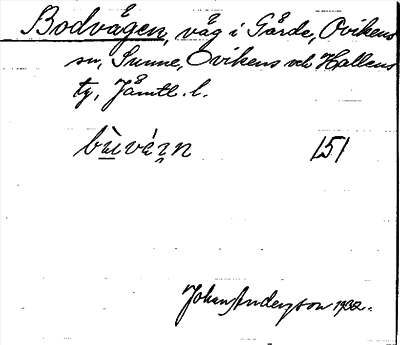 Bodvågen, våg i Gårde, Ovikens
sn, Sunne, Ovikens och Hallens
tg, Jämtl. l.
bùvé̱ṇn 151
Johan Anderson 1932.